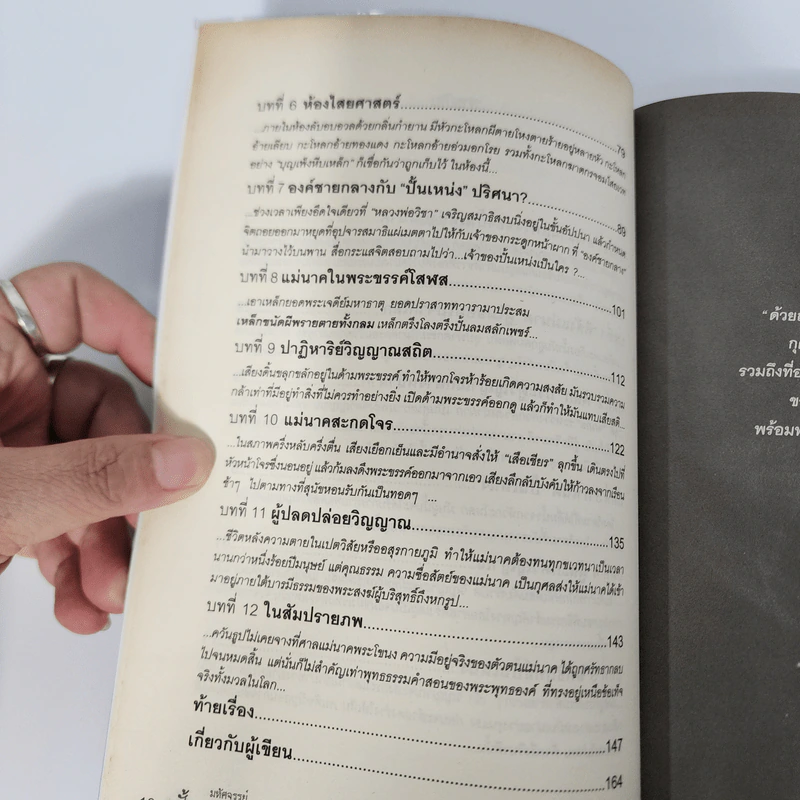 บทที่ 6 ห้องไสยศาสตร์ 79
...ภายในห้องลับอบอวลด้วยกลิ่นกำยาน มีหัวกะโหลกผีตายโหงตายร้ายอยู่หลายหัว กะโหลก
อ้ายเลียบ กะโหลกอ้ายทองแดง กะโหลกอ้ายอ่วมอกโรย รวมทั้งกะโหลกฆาตกรจอมโหด
อย่าง “บุญเพ็งหีบเหล็ก” ก็เชื่อกันว่าถูกเก็บไว้ ในห้องนี้...
บทที่ 7 องค์ชายกลางกับ “ปั้นเหน่ง” ปริศนา? 89
...ช่วงเวลาเพียงอึดใจเดียวที่ “หลวงพ่อวิชา” เจริญสมาธิสงบนิ่งอยู่ในขั้นอัปปนา แล้วกำหนด
จิตถอยออกมาหยุดที่อุปจารสมาธิแผ่เมตตาไปให้กับเจ้าของกระดูกหน้าผาก ที่ “องค์ชายกลาง”
นำมาวางไว้บนพาน สื่อกระแสจิตสอบถามไปว่า...เจ้าของปั้นเหน่งเป็นใคร ?...
บทที่ 8 แม่นาคในพระขรรค์โสฬส 101
...เอาเหล็กยอดพระเจดีย์มหาธาตุ ยอดปราสาททวารามาประสม
เหล็กขนัดผีพรายตายทั้งกลม เหล็กตรึงโลงตรึงปั้นลมสลักเพชร์...
บทที่ 9 ปาฏิหาริย์วิญญาณสถิต 112
...เสียงดิ้นขลุกขลักอยู่ในด้ามพระขรรค์ ทำให้พวกโจรห้าร้อยเกิดความสงสัย มันรวบรวมความ
กล้าเท่าที่มีอยู่ทำสิ่งที่ไม่ควรทำอย่างยิ่ง เปิดด้ามพระขรรค์ออกดู แล้วก็ทำให้มันแทบเสียสติ...
บทที่ 10 แม่นาคสะกดโจร 122
...ในสภาพครึ่งหลับครึ่งตื่น เสียงเยือกเย็นและมีอำนาจสั่งให้ “เสือเชียร” ลุกขึ้น เดินตรงไปที่
หัวหน้าโจรซึ่งนอนอยู่ แล้วก้มลงดึงพระขรรค์ออกมาจากเอว เสียงลึกลับบังคับให้ก้าวลงจากเรือน
ช้าๆ ไปตามทางที่สุนัขหอนรับกันเป็นทอดๆ ...
บทที่ 11 ผู้ปลดปล่อยวิญญาณ 135
...ชีวิตหลังความตายในเปตวิสัยหรืออสุรกายภูมิ ทำให้แม่นาคต้องทนทุกขเวทนาเป็นเวลา
นานกว่าหนึ่งร้อยปีมนุษย์ แต่คุณธรรม ความซื่อสัตย์ของแม่นาค เป็นกุศลส่งให้แม่นาคได้เข้า
มาอยู่ภายใต้บารมีธรรมของพระสงฆ์ผู้บริสุทธิ์ถึงหกรูป...
บทที่ 12 ในสัมปรายภพ 143
...ควันธูปไม่เคยจางที่ศาลแม่นาคพระโขนง ความมีอยู่จริงของตัวตนแม่นาค ได้ถูกศรัทธากลบ
ไปจนหมดสิ้น แต่นั่นก็ไม่สำคัญเท่าพุทธธรรมคำสอนของพระพุทธองค์ ที่ทรงอยู่เหนือข้อเท็จ
จริงทั้งมวลในโลก...
ท้ายเรื่อง 147
เกี่ยวกับผู้เขียน 164
มหัศจรรย์
“ด้วย
กุ
รวมถึงที่
ข
พร้อม